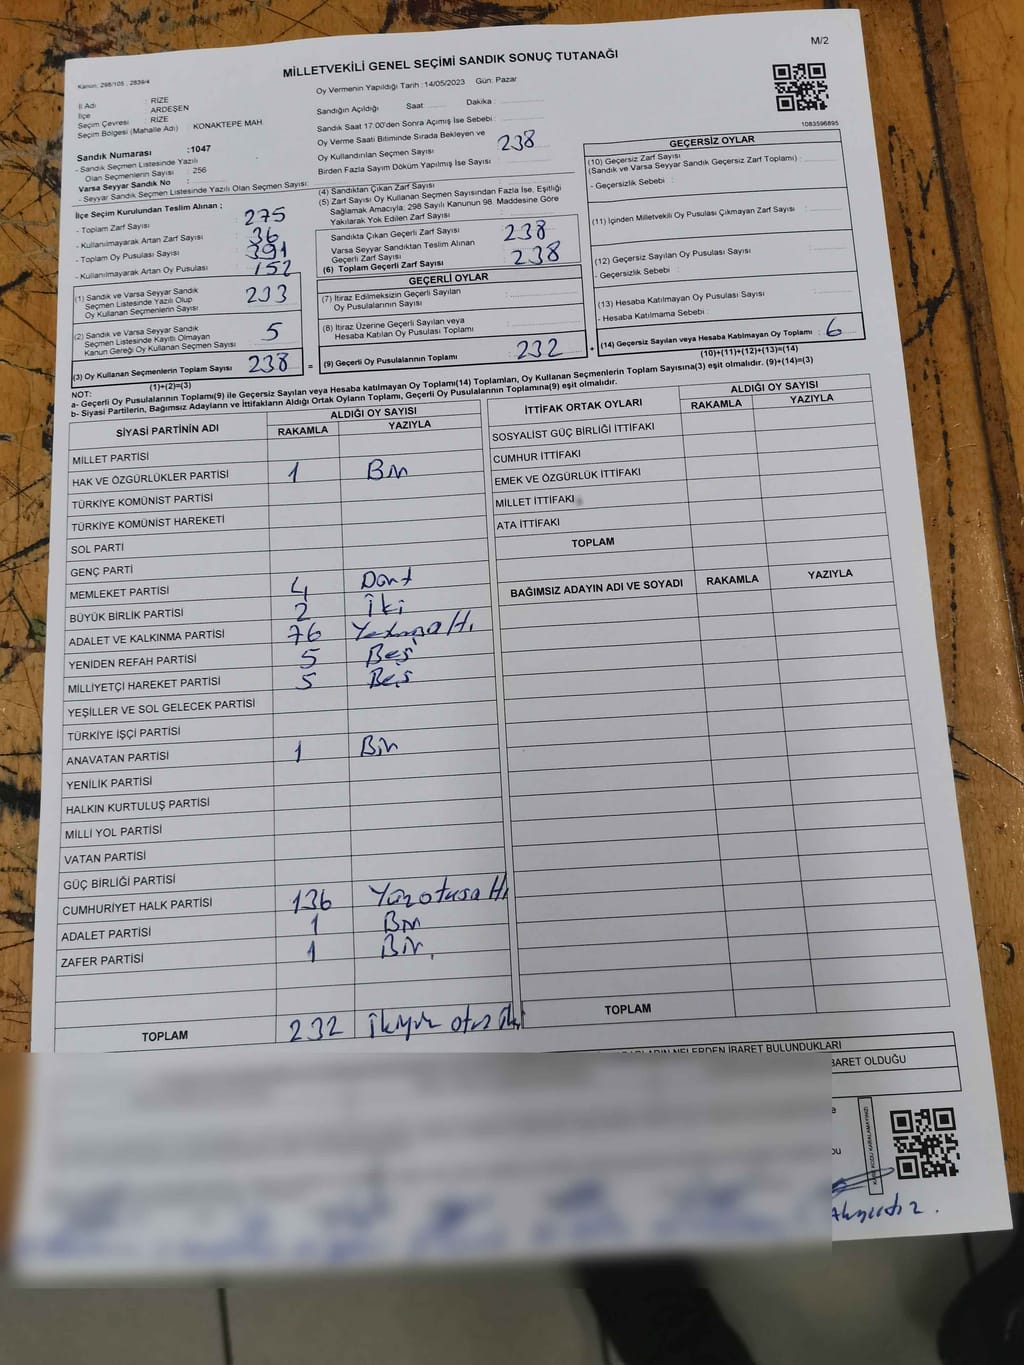 M/2
MİLLETVEKİLİ GENEL SEÇİMİ SANDIK SONUÇ TUTANAĞI
Kanun: 298/105 , 2839/4
İl Adı : RİZE
İlçe : ARDEŞEN
Seçim Çevresi : RİZE
Seçim Bölgesi (Mahalle Adı) : KONAKTEPE MAH.
Sandık Numarası :1047
- Sandık Seçmen Listesinde Yazılı
Olan Seçmenlerin Sayısı : 256
Varsa Seyyar Sandık No :
- Seyyar Sandık Seçmen Listesinde Yazılı Olan Seçmen Sayısı:
Oy Vermenin Yapıldığı Tarih :14/05/2023 Gün: Pazar
Sandığın Açıldığı Saat Dakika :
Sandık Saat 17:00'den Sonra Açımış İse Sebebi :
Oy Verme Saati Bitiminde Sırada Bekleyen ve
Oy Kullandırılan Seçmen Sayısı : 238
Birden Fazla Sayım Döküm Yapılmış İse Sayısı :
1083596895
İlçe Seçim Kurulundan Teslim Alınan ;
- Toplam Zarf Sayısı : 275
- Kullanılmayarak Artan Zarf Sayısı : 36
- Toplam Oy Pusulası Sayısı : 391
- Kullanılmayarak Artan Oy Pusulası : 152
(1) Sandık ve Varsa Seyyar Sandık
Seçmen Listesinde Yazılı Olup
Oy Kullanan Seçmenlerin Sayısı : 233
(2) Sandık ve Varsa Seyyar Sandık
Seçmen Listesinde Kayıtlı Olmayan
Kanun Gereği Oy Kullanan Seçmen Sayısı : 5
(3) Oy Kullanan Seçmenlerin Toplam Sayısı : 238
(1)+(2)=(3)
(4) Sandıktan Çıkan Zarf Sayısı :
(5) Zarf Sayısı Oy Kullanan Seçmen Sayısından Fazla İse, Eşitliği
Sağlamak Amacıyla; 298 Sayılı Kanunun 98. Maddesine Göre
Yakılarak Yok Edilen Zarf Sayısı :
Sandıkta Çıkan Geçerli Zarf Sayısı : 238
Varsa Seyyar Sandıktan Teslim Alınan
Geçerli Zarf Sayısı :
(6) Toplam Geçerli Zarf Sayısı : 238
GEÇERLİ OYLAR
(7) İtiraz Edilmeksizin Geçerli Sayılan
Oy Pusulalarının Sayısı :
(8) İtiraz Üzerine Geçerli Sayılan veya
Hesaba Katılan Oy Pusulası Toplamı :
= (9) Geçerli Oy Pusulalarının Toplamı : 232
GEÇERSİZ OYLAR
(10) Geçersiz Zarf Sayısı
(Sandık ve Varsa Seyyar Sandık Geçersiz Zarf Toplamı) :
- Geçersizlik Sebebi :
(11) İçinden Milletvekili Oy Pusulası Çıkmayan Zarf Sayısı :
(12) Geçersiz Sayılan Oy Pusulası Sayısı :
- Geçersizlik Sebebi :
(13) Hesaba Katılmayan Oy Pusulası Sayısı :
- Hesaba Katılmama Sebebi :
+ (14) Geçersiz Sayılan veya Hesaba Katılmayan Oy Toplamı : 6
(10)+(11)+(12)+(13)=(14)
NOT:
a- Geçerli Oy Pusulalarının Toplamı(9) ile Geçersiz Sayılan veya Hesaba katılmayan Oy Toplamı(14) Toplamları, Oy Kullanan Seçmenlerin Toplam Sayısına(3) eşit olmalıdır. (9)+(14)=(3)
b- Siyasi Partilerin, Bağımsız Adayların ve İttifakların Aldığı Ortak Oyların Toplamı, Geçerli Oy Pusulalarının Toplamına(9) eşit olmalıdır.
SİYASİ PARTİNİN ADI ALDIĞI OY SAYISI
RAKAMLA YAZIYLA
MİLLET PARTİSİ
HAK VE ÖZGÜRLÜKLER PARTİSİ 1 Bir
TÜRKİYE KOMÜNİST PARTİSİ
TÜRKİYE KOMÜNİST HAREKETİ
SOL PARTİ
GENÇ PARTİ
MEMLEKET PARTİSİ 4 Dört
BÜYÜK BİRLİK PARTİSİ 2 İki
ADALET VE KALKINMA PARTİSİ 76
YENİDEN REFAH PARTİSİ 5 Beş
MİLLİYETÇİ HAREKET PARTİSİ 5 Beş
YEŞİLLER VE SOL GELECEK PARTİSİ
TÜRKİYE İŞÇİ PARTİSİ
ANAVATAN PARTİSİ 1 Bir
YENİLİK PARTİSİ
HALKIN KURTULUŞ PARTİSİ
MİLLİ YOL PARTİSİ
VATAN PARTİSİ
GÜÇ BİRLİĞİ PARTİSİ
CUMHURİYET HALK PARTİSİ 136
ADALET PARTİSİ 1 Bir
ZAFER PARTİSİ 1 Bir.
TOPLAM 232 İkiyüz otuz iki
İTTİFAK ORTAK OYLARI ALDIĞI OY SAYISI
RAKAMLA YAZIYLA
SOSYALİST GÜÇ BİRLİĞİ İTTİFAKI
CUMHUR İTTİFAKI
EMEK VE ÖZGÜRLÜK İTTİFAKI
MİLLET İTTİFAKI
ATA İTTİFAKI
TOPLAM
BAĞIMSIZ ADAYIN ADI VE SOYADI RAKAMLA YAZIYLA
TOPLAM
NELERDEN İBARET BULUNDUKLARI
BARET OLDUĞU